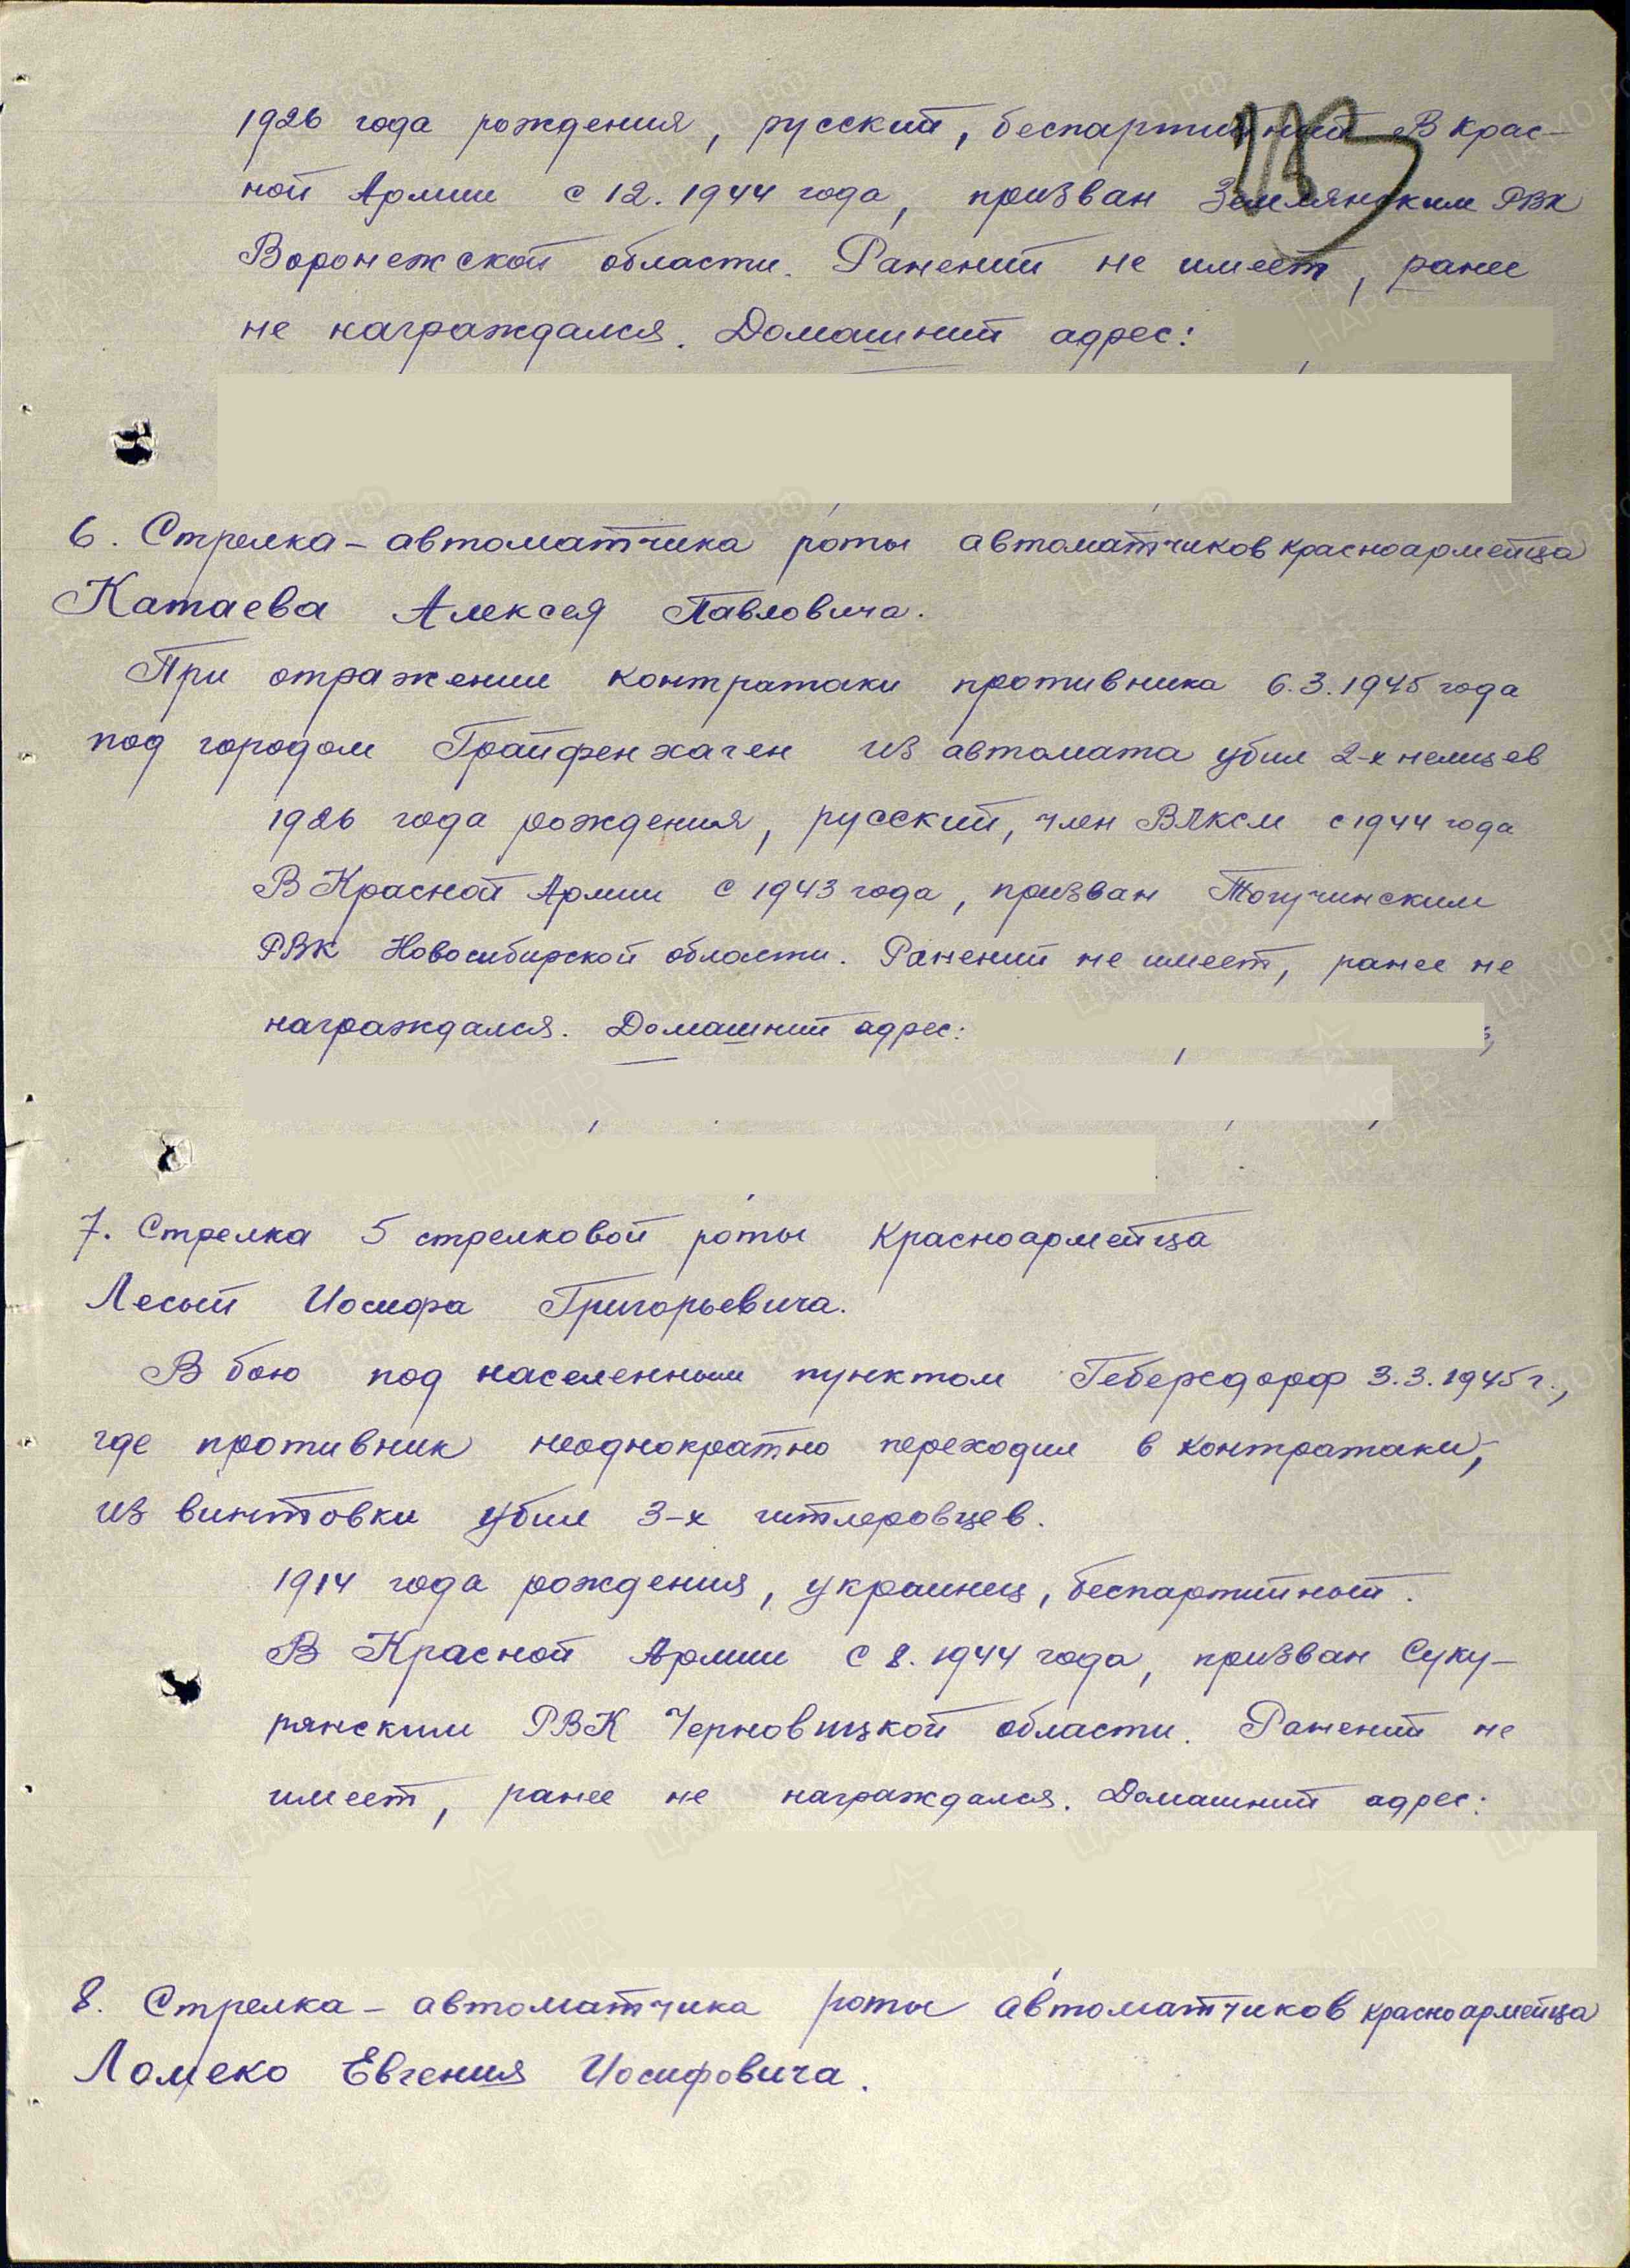 1926 года рождения, русский, беспартийный В Крас-
ной Армии с 12. 1944 года, призван Землянским РВК
Воронежской области. Ранений не имеет, ранее
не награждался. Домашний адрес:
6. Стрелка-автоматчика роты автоматчиков красноармейца
Катаева Алексея Павловича.
При отражении контратаки противника 6.3.1945 года
под городом Грайфенхаген из автомата убил 2-х немцев
1926 года рождения, русский, член ВЛКСМ с 1944 года
В Красной Армии с 1943 года, призван Тогучинским
РВК Новосибирской области. Ранений не имеет, ранее не
награждался. Домашний адрес:
7. Стрелка 5 стрелковой роты красноармейца
Лесый Иосифа Григорьевича.
В бою под населенным пунктом Геберсдорф 3.3.1945 г.,
где противник неоднократно переходил в контратаки,
из винтовки убил 3-х гитлеровцев.
1914 года рождения, украинец, беспартийный.
В Красной Армии с 8.1944 года, призван Секу-
рянским РВК Черновицкой области. Ранений не
имеет, ранее не награждался. Домашний адрес:
8. Стрелка-автоматчика роты автоматчиков красноармейца
Ломеко Евгения Иосифовича.